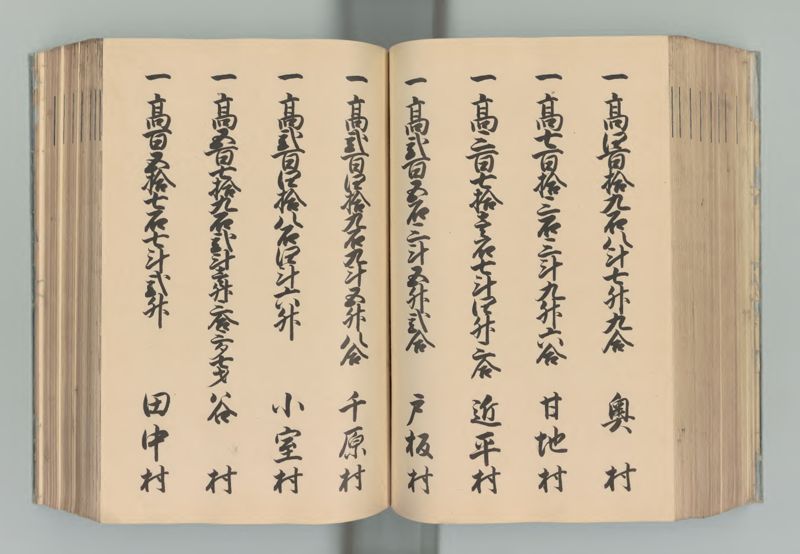 一髙四百拾九石八斗七升九合 奥村
一髙七百拾三石三斗九升六合 甘地村
一髙三百七拾壱石七斗四升三合 近平村
一髙弐百五石三斗五升弐合 戸板村
一髙弐百四拾九石九斗五升八合 千原村
一髙弐百四拾八石四斗六升 小室村
一髙五百七拾九石弐斗壱升三合 谷村
一髙百五拾七石七斗弐升 田中村